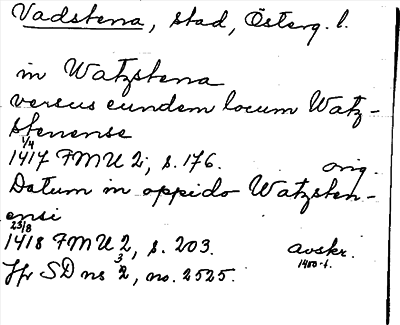 Vadstena, stad, Österg. l.
in Watzstena
versus eundem locum Watz-
stenense
1/4
1417 FMU 2, s. 176. orig.
Datum in oppido Watzsten-
ensi
23/8
1418 FMU 2, s. 203. avskr.
1400-t.
Jfr SD ns 3 2, no. 2525.